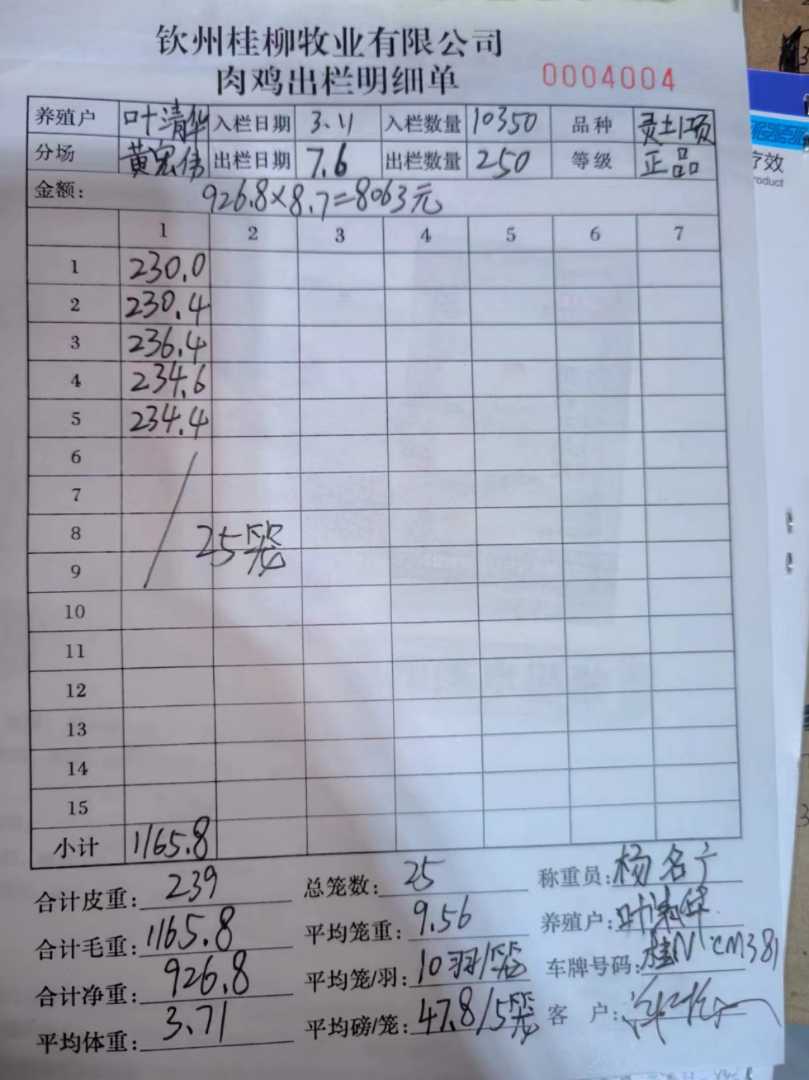 钦州桂柳牧业有限公司
肉鸡出栏明细单 0004004
养殖户 叶清华 入栏日期 3.11 入栏数量 10350 品种 灵土1项
分场 黄宏伟 出栏日期 7.6 出栏数量 250 等级 正品
金额: 926.8×8.7=8063元
1 2 3 4 5 6 7
1 230.0
2 230.4
3 236.4
4 234.6
5 234.4
6
7
8 25笼
9
10
11
12
13
14
15
小计 1165.8
合计皮重: 239 总笼数: 25 称重员: 杨名宁
合计毛重: 1165.8 平均笼重: 9.56 养殖户: 叶清华
合计净重: 926.8 平均笼/羽: 10羽/笼 车牌号码: 桂N·CM381
平均体重: 3.71 平均磅/笼: 47.8/5笼 客户:
疗效
roduct